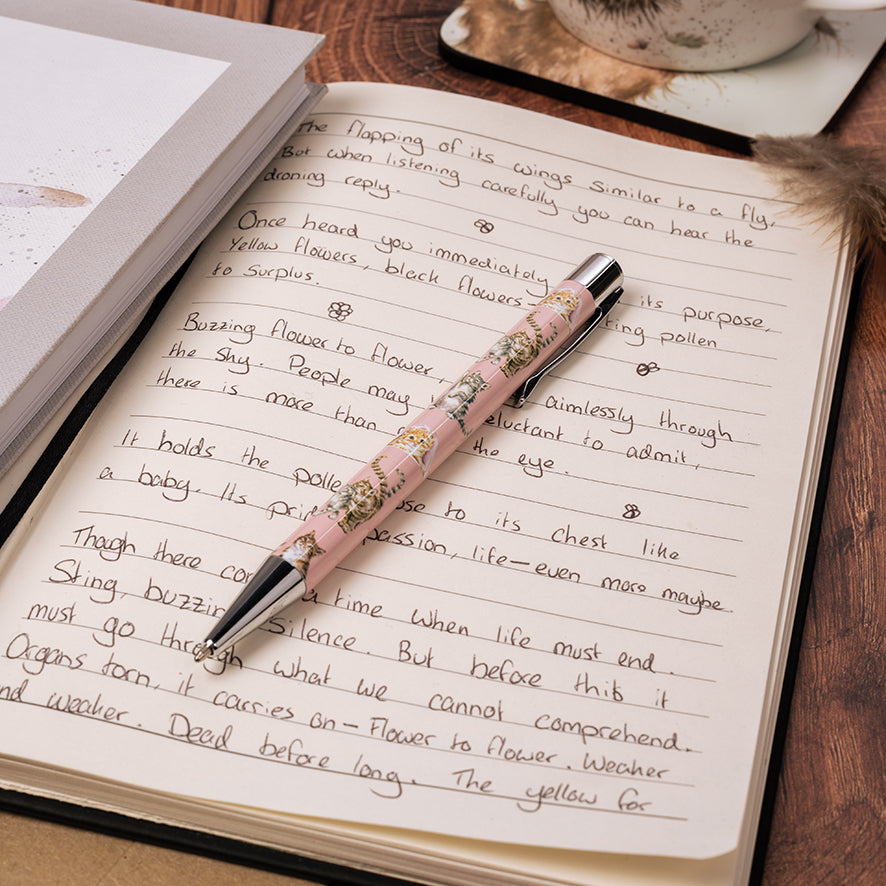 The flapping of its wings similar to a fly,
But when listening carefully you can hear the
droning reply.
Once heard you immediately its purpose,
Yellow flowers, black flowers – pollen
to surplus.
Buzzing flower to flower, aimlessly through
the sky. People may reluctant to admit,
there is more than the eye.
It holds the pollen to its chest like
a baby. Its passion, life – even more maybe.
Though there a time when life must end.
Sting, buzzing silence. But before this it
must go through what we cannot comprehend.
Organs torn, it carries on – Flower to flower. Weaker
and weaker. Dead before long. The yellow for